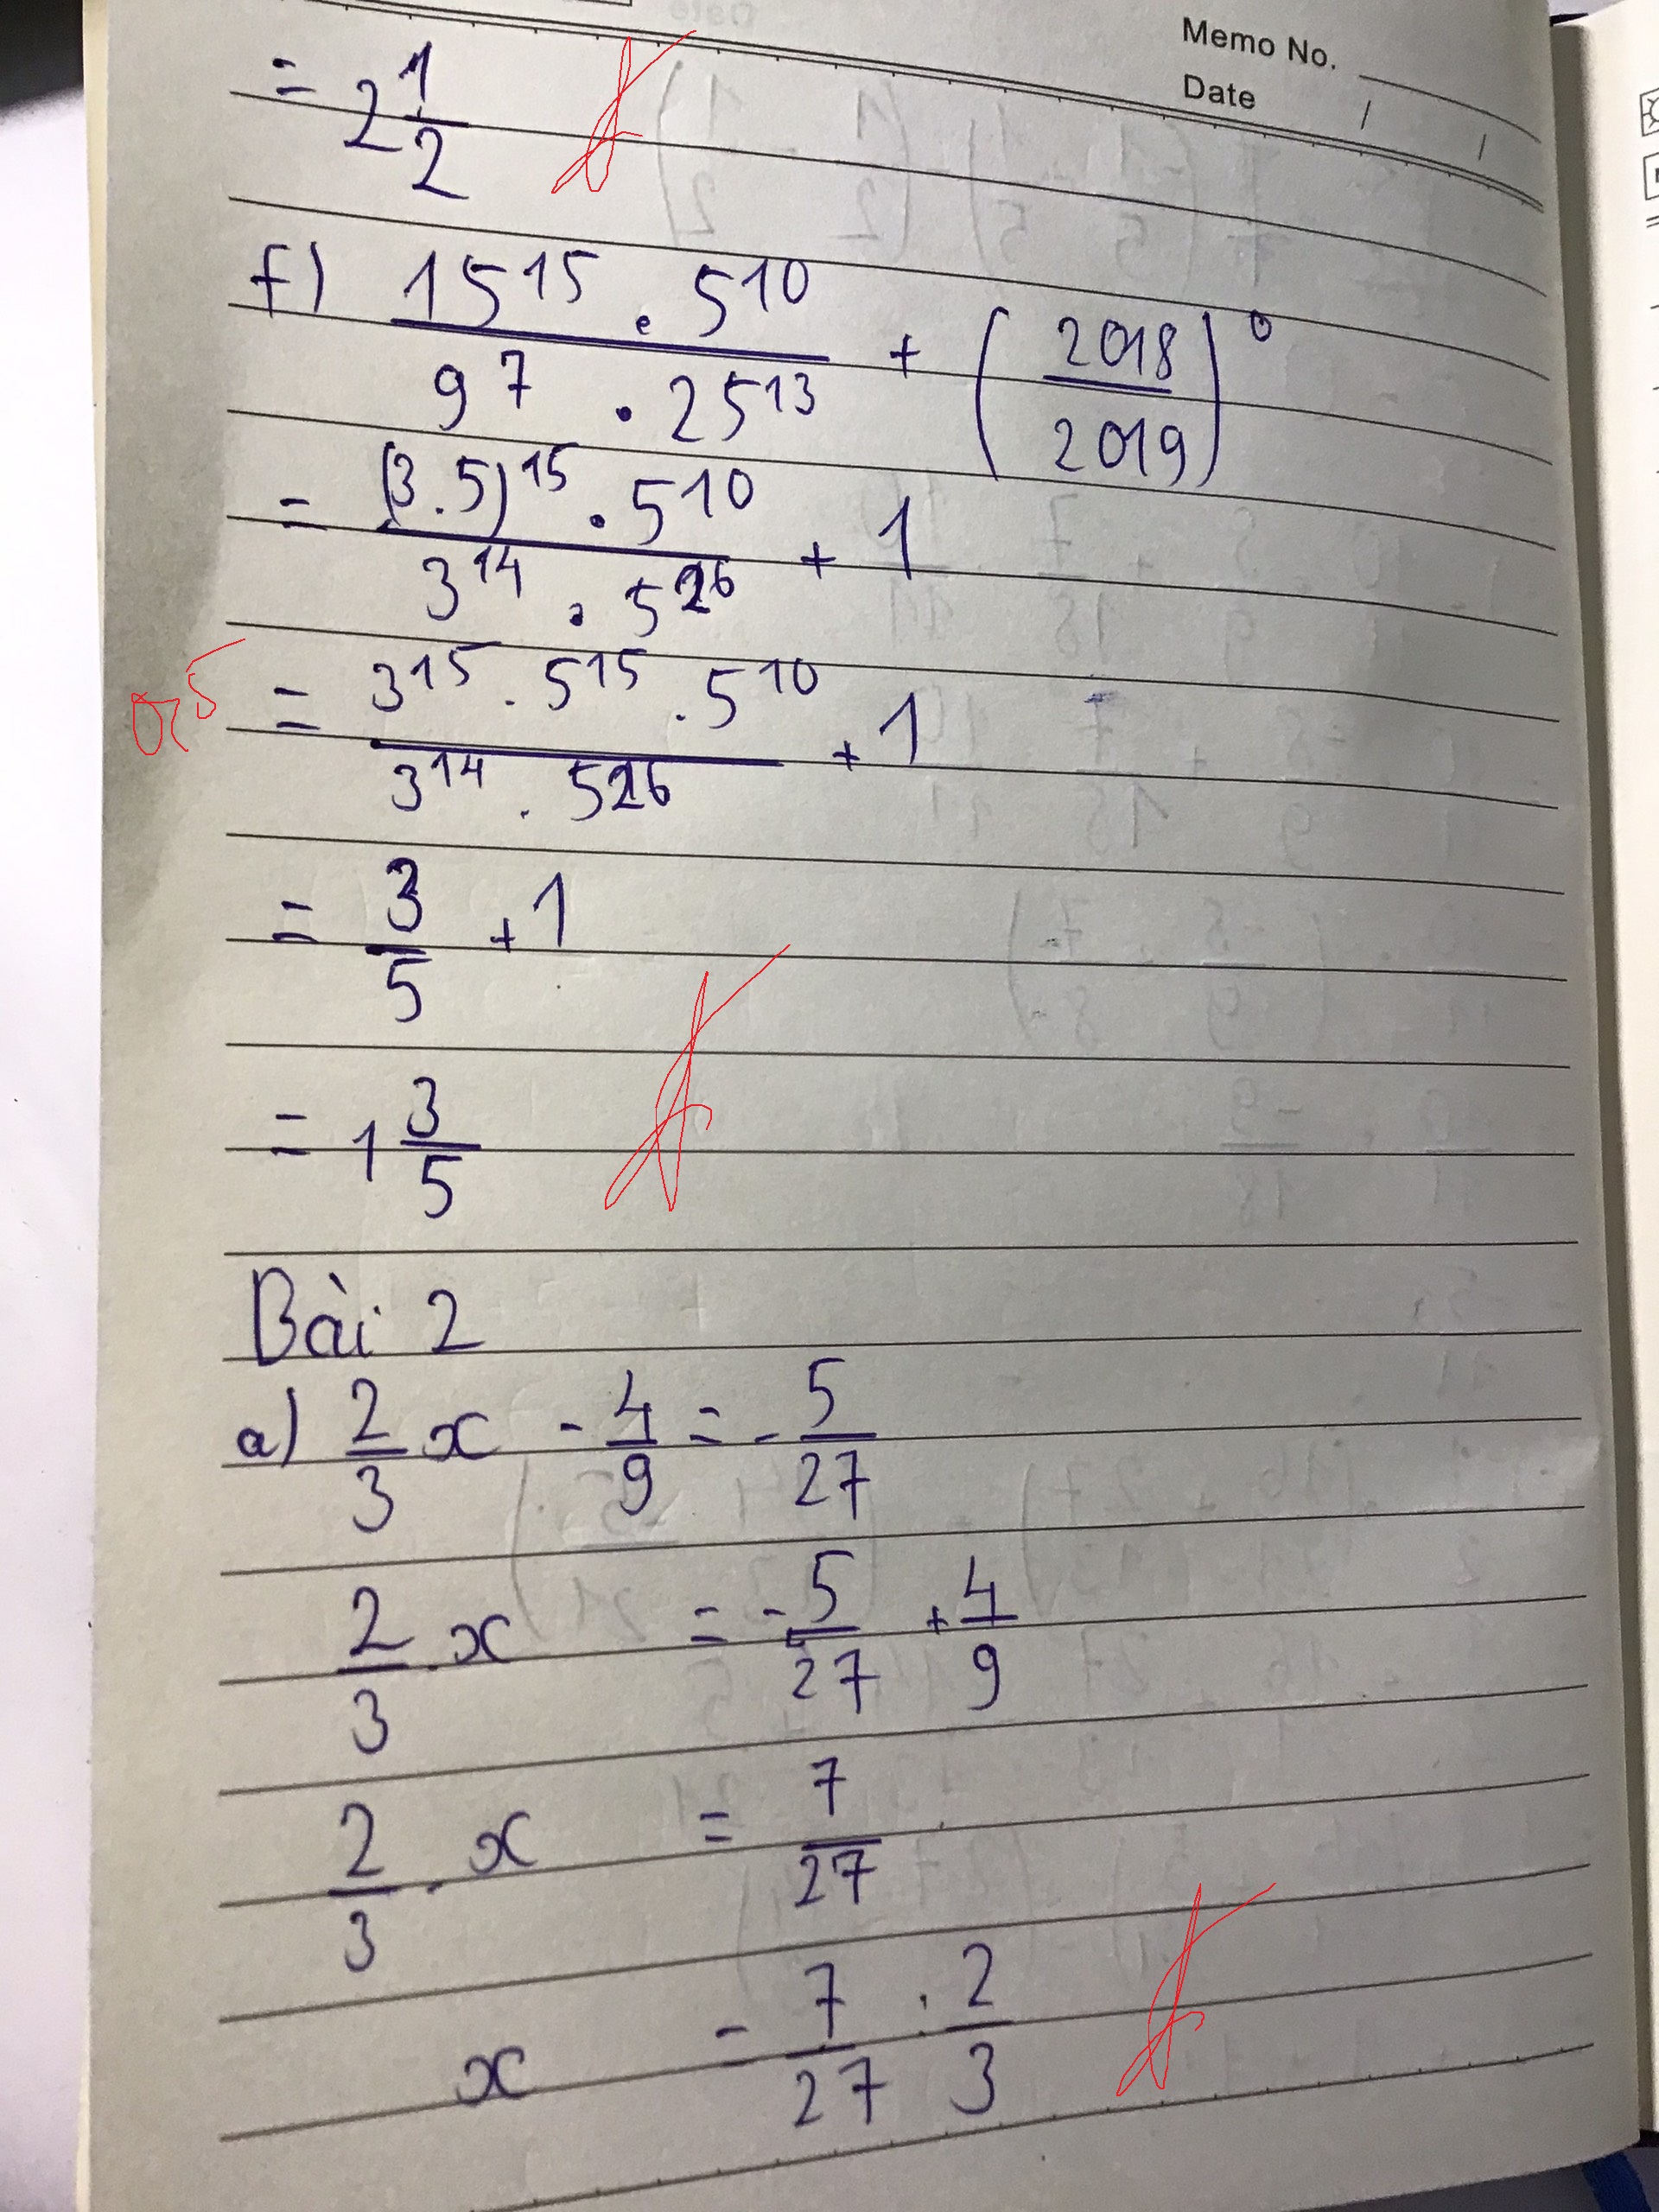 Memo No.
Date / /
= 2 1/2
f) 15^15 . 5^10 / 9^7 . 25^13 + (2018/2019)^0
= (3.5)^15 . 5^10 / 3^14 . 5^26 + 1
0,5
= 3^15 . 5^15 . 5^10 / 3^14 . 5^26 + 1
= 3/5 + 1
= 1 3/5
Bài 2
a) 2/3 x - 4/9 = - 5/27
2/3 . x = - 5/27 + 4/9
2/3 . x = 7/27
x = 7/27 . 2/3